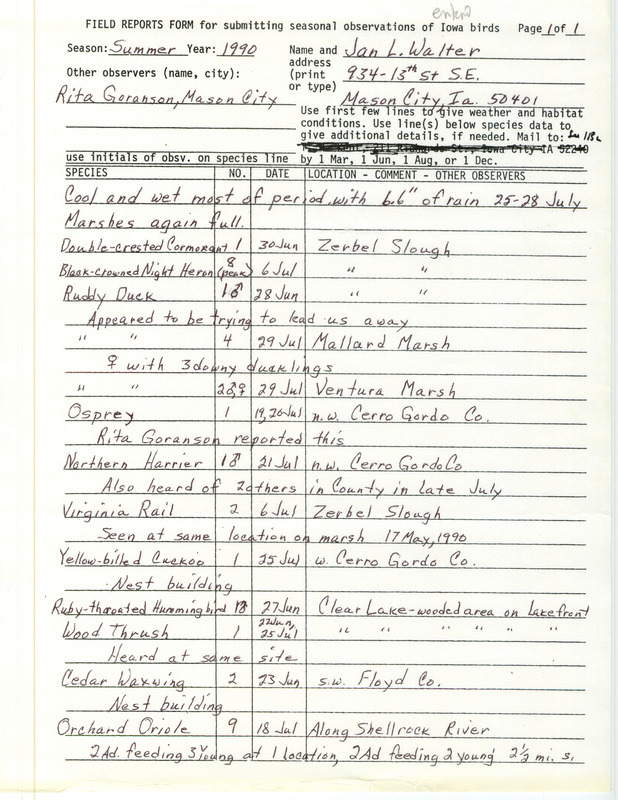 entered
FIELD REPORTS FORM for submitting seasonal observations of Iowa birds Page 1 of 1
Season: Summer Year: 1990 Name and Jan L. Walter
address
Other observers (name, city): (print 934-13th St S.E.
or type)
Rita Goranson, Mason City Mason City, Ia. 50401
Use first few lines to give weather and habitat
conditions. Use line(s) below species data to
give additional details, if needed. Mail to:
Iowa City IA 52240
use initials of obsv. on species line by 1 Mar, 1 Jun, 1 Aug, or 1 Dec.
SPECIES NO. DATE LOCATION - COMMENT - OTHER OBSERVERS
Cool and wet most of period with 6.6" of rain 25-28 July
Marshes again full.
Double-crested Cormorant 1 30 Jun Zerbel Slough
Black-crowned Night Heron 8 (peak) 6 Jul " "
Ruddy Duck 1♂ 28 Jun " "
Appeared to be trying to lead us away
" " 4 29 Jul Mallard Marsh
♀ with 3 downy ducklings
" " 2♂♀ 29 Jul Ventura Marsh
Osprey 1 19,20 Jul n.w. Cerro Gordo Co.
Rita Goranson reported this
Northern Harrier 1♂ 21 Jul n.w. Cerro Gordo Co
Also heard of 2 others in County in late July
Virginia Rail 2 6 Jul Zerbel Slough
Seen at same location on marsh 17 May, 1990
Yellow-billed Cuckoo 1 25 Jul w. Cerro Gordo Co.
Nest building
Ruby-throated Hummingbird 1♂ 27 Jun Clear Lake-wooded area on Lakefront
Wood Thrush 1 22 Jun, 25 Jul " " " " " "
Heard at same site
Cedar Waxwing 2 23 Jun s.w. Floyd Co.
Nest building
Orchard Oriole 9 18 Jul Along Shellrock River
2 Ad. feeding 3 Young at 1 location, 2 Ad feeding 2 young 2½ mi. s.